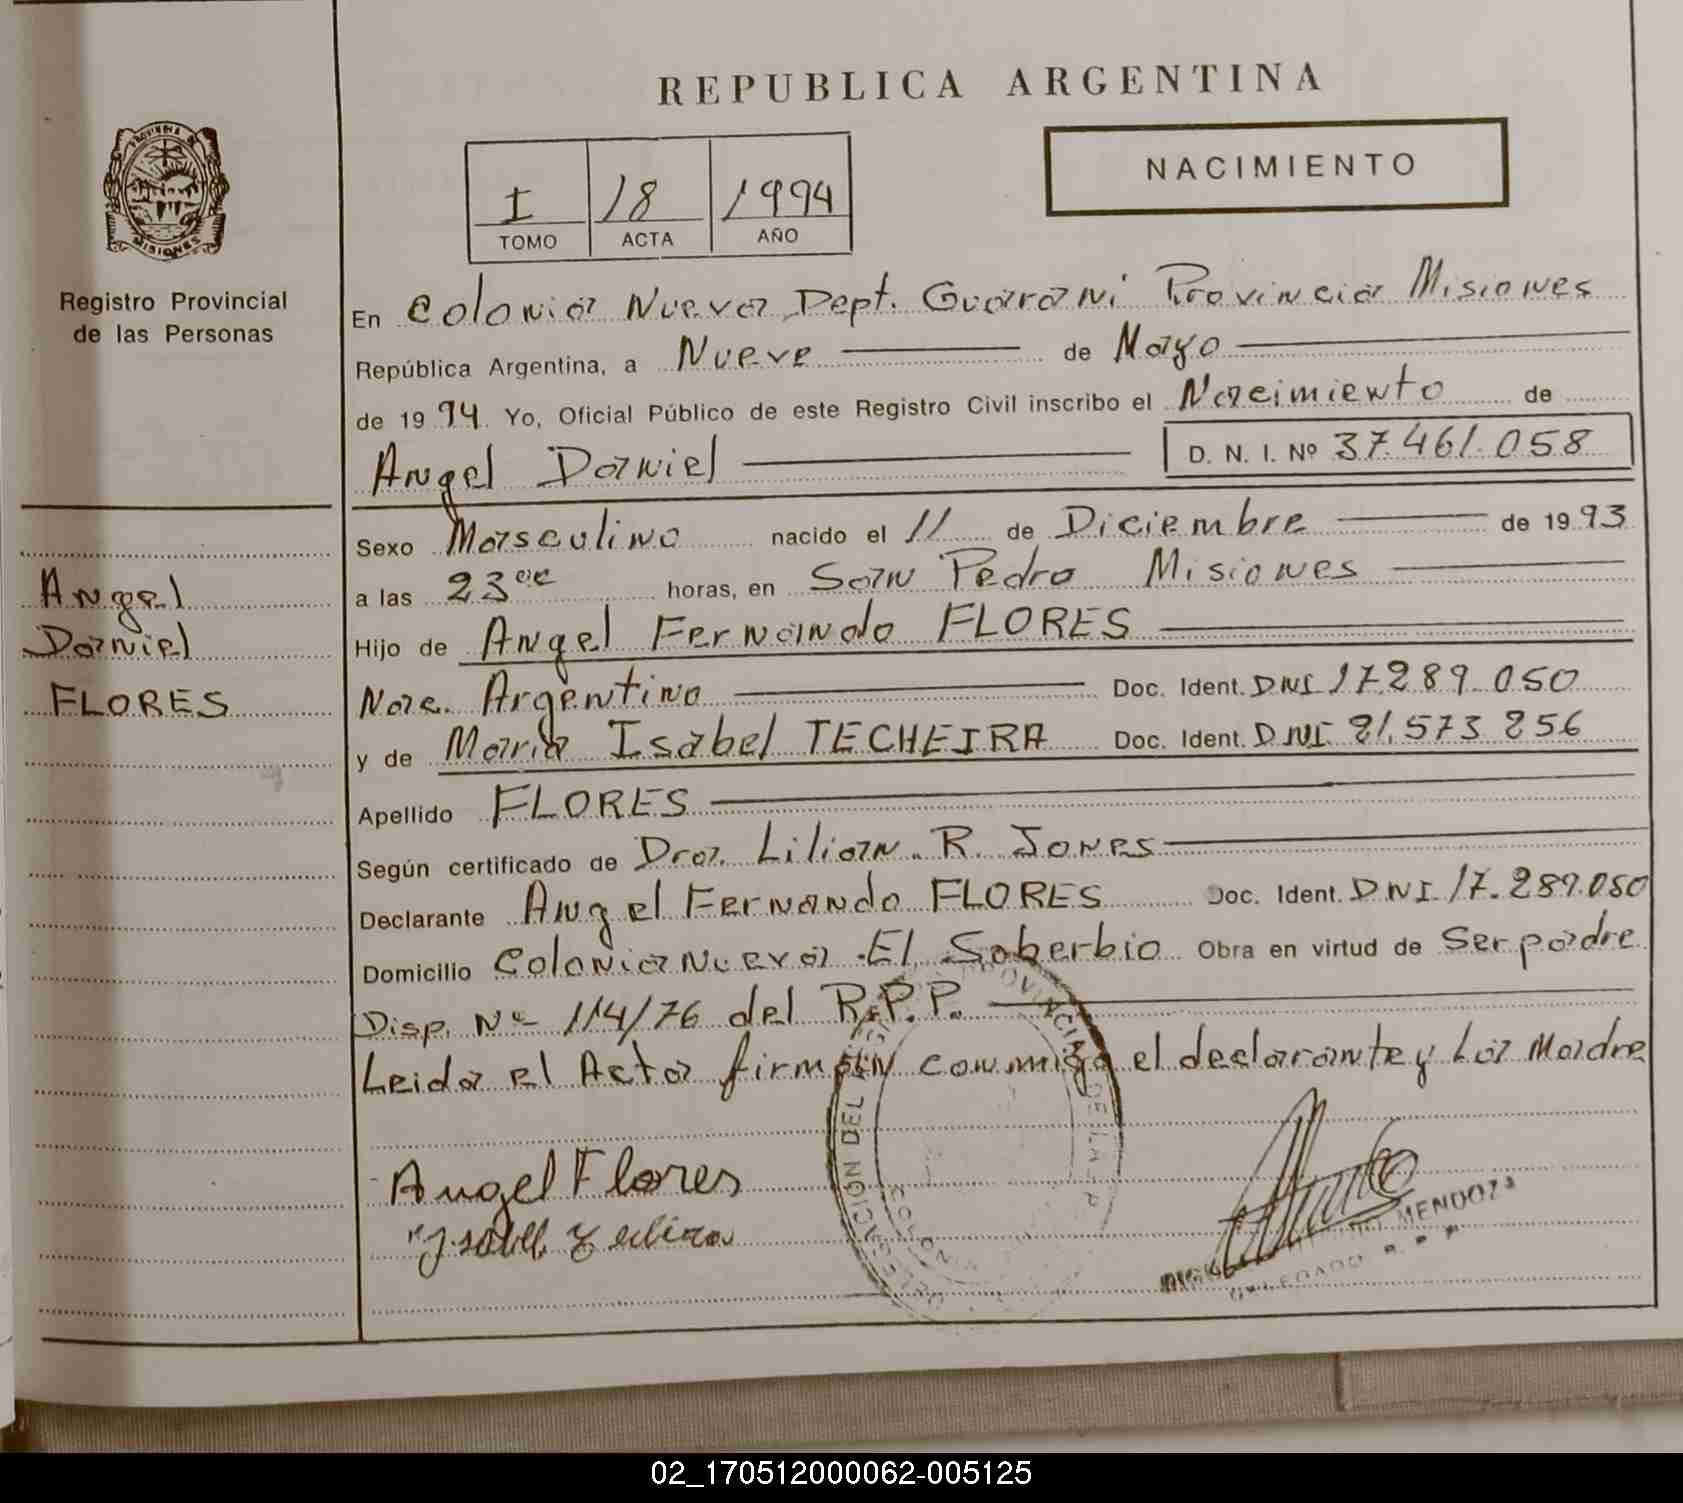 REPUBLICA ARGENTINA
PROVINCIA DE MISIONES
Registro Provincial
de las Personas
I 18 1994
TOMO ACTA AÑO
NACIMIENTO
En Colonia Nueva Dept. Guarani Provincia Misiones
República Argentina, a Nueve de Mayo
de 1994 Yo, Oficial Público de este Registro Civil inscribo el Nacimiento de
Angel Daniel D. N. I. Nº 37.461.058
Sexo Masculino nacido el 11 de Diciembre de 1993
a las 23 horas, en San Pedro Misiones
Hijo de Angel Fernando FLORES
Nac. Argentino Doc. Ident. DNI 17.289.050
y de Maria Isabel TECHEIRA Doc. Ident. DNI 21.573.256
Apellido FLORES
Según certificado de Dra. Lilian R. Jones
Declarante Angel Fernando FLORES Doc. Ident. DNI 17.289.050
Domicilio Colonia Nueva El Soberbio Obra en virtud de Ser padre
Disp. Nº 114/76 del R.P.P.
Leida el Acta firman conmigo el declarante y La Madre
Angel
Daniel
FLORES
Angel Flores
MENDOZA
DELEGADO
02_170512000062-005125